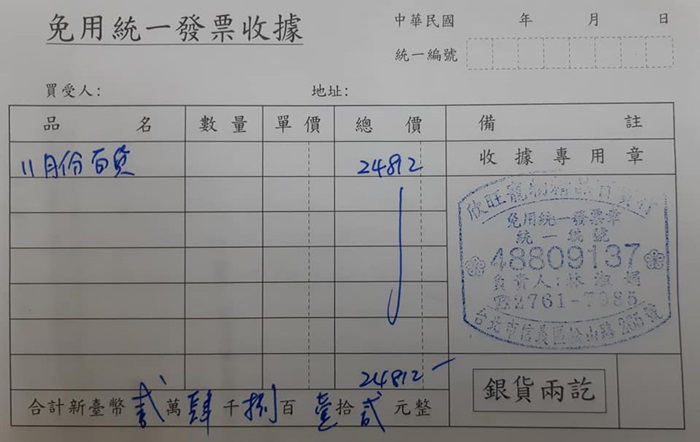 免用統一發票收據
中華民國 年 月 日
統一編號
買受人: 地址:
品名 數量 單價 總價 備註
11月份百貨 24812 收據專用章
欣旺寵物
免用統一發票章
統一編號
48809137
負責人:林淑娟
☎2761-7985
台北市信義區松山路265號
24812
合計新臺幣 貳 萬 肆 千 捌 百 壹 拾 貳 元整
銀貨兩訖